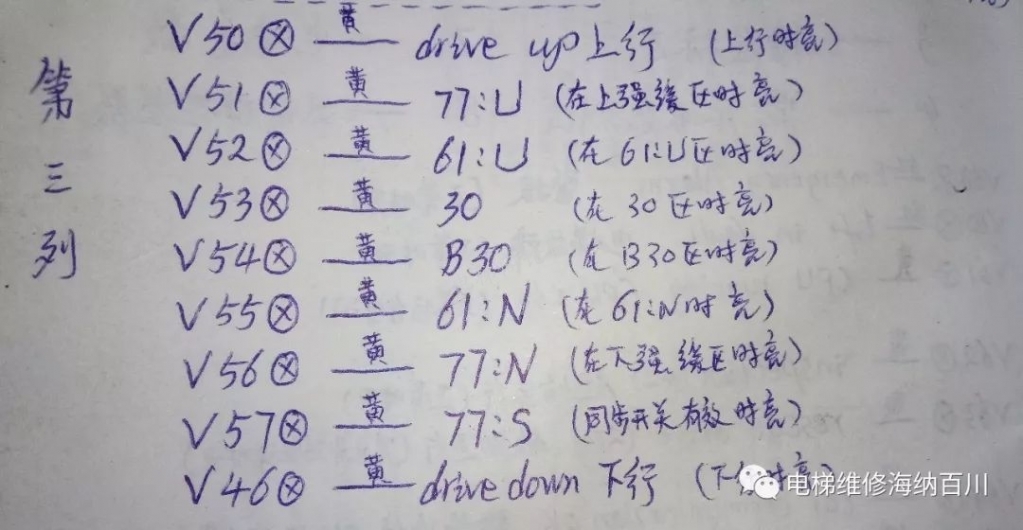 第三列
V50 ⊗ 黄 drive up 上行 (上行时亮)
V51 ⊗ 黄 77:U (在上强缓区时亮)
V52 ⊗ 黄 61:U (在61:U区时亮)
V53 ⊗ 黄 30 (在30区时亮)
V54 ⊗ 黄 B30 (在B30区时亮)
V55 ⊗ 黄 61:N (在61:N时亮)
V56 ⊗ 黄 77:N (在下强缓区时亮)
V57 ⊗ 黄 77:S (同步开关有效时亮)
V46 ⊗ 黄 drive down 下行 (下行时亮)
电梯维修海纳百川